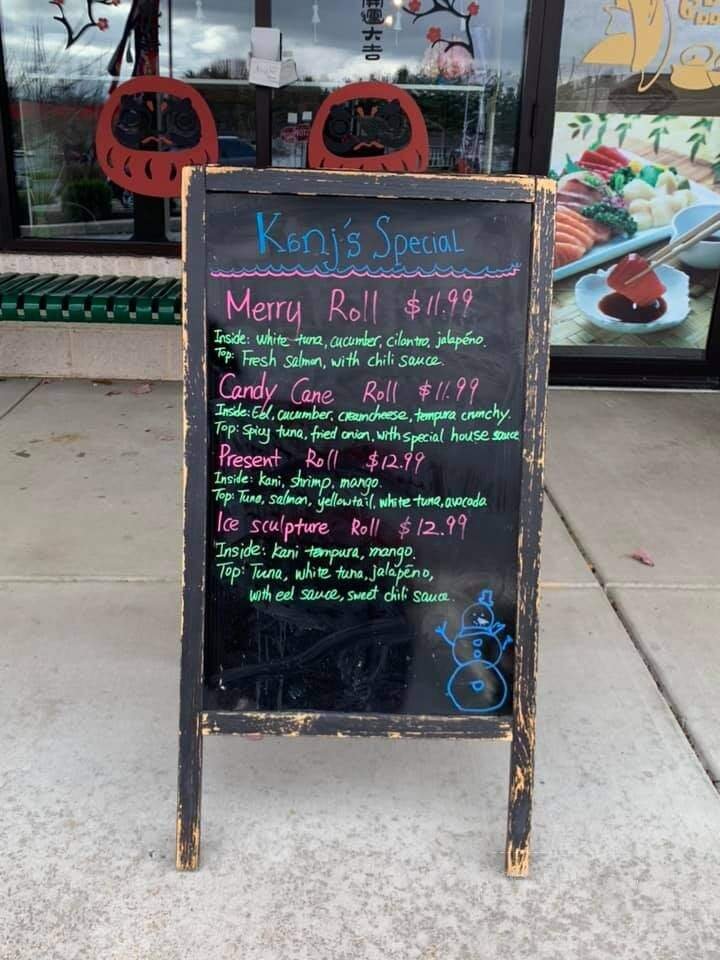 開運大吉
Konj's Special
Merry Roll $11.99
Inside: white tuna, cucumber, cilantro, jalapéno.
Top: Fresh Salmon, with chili sauce.
Candy Cane Roll $11.99
Inside: Eel, cucumber, creamcheese, tempura crunchy.
Top: Spicy tuna, fried onion, with special house sauce
Present Roll $12.99
Inside: Kani, shrimp, mango.
Top: Tuna, salmon, yellowtail, white tuna, avocado
Ice sculpture Roll $12.99
Inside: Kani tempura, mango.
Top: Tuna, white tuna, jalapéno,
with eel sauce, sweet chili sauce.